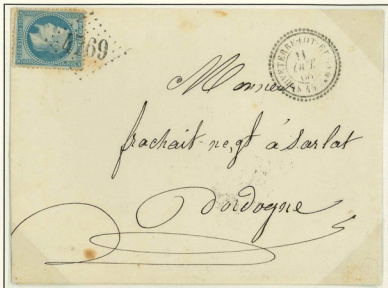 4769
11
OCT.
Monsieur
frachait negt à Sarlat
Dordogne